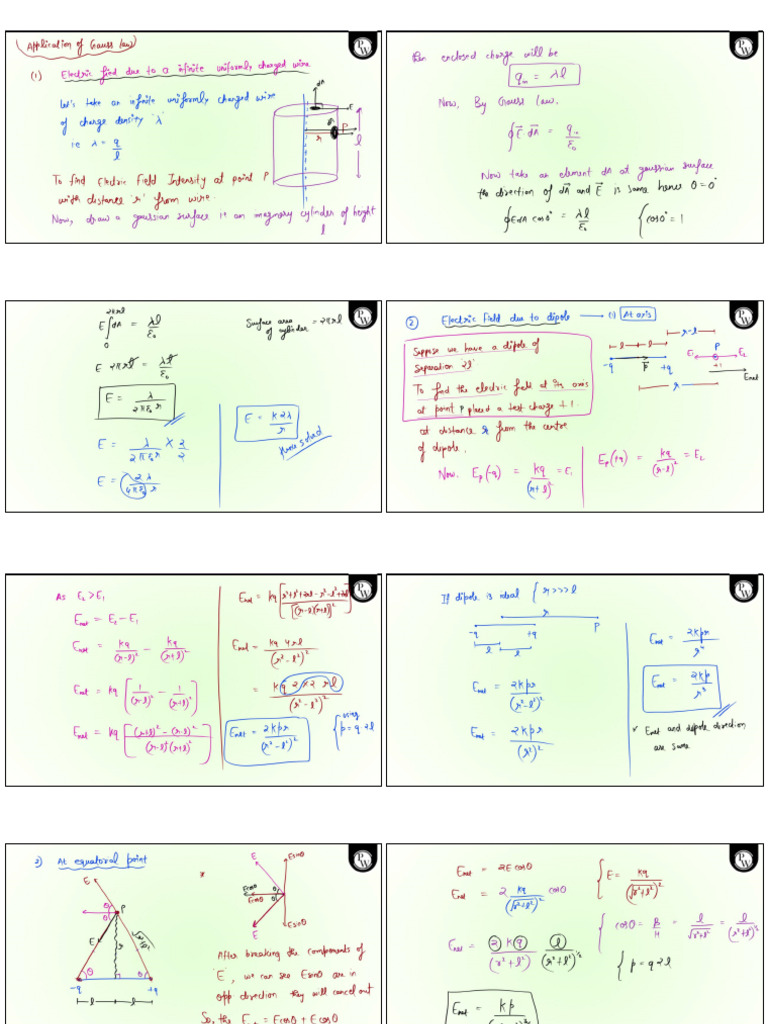 Application of Gauss law
(1) Electric field due to a infinite uniformly charged wire
Let's take an infinite uniformly charged wire
of charge density 'λ'
i.e λ = q/l
dA
E
r
P
l
To find Electric Field Intensity at point P
with distance 'r' from wire.
Now, draw a gaussian surface i.e an imaginary cylinder of height
l
PW
then enclosed charge will be
q_in = λl
Now, By Gauss law.
∮E⃗ dA⃗ = q_in/ε₀
Now take an element dA at gaussian surface
the direction of dA⃗ and E⃗ is same hence θ = 0°
∮EdA cos0° = λl/ε₀ { cos0° = 1
PW
E ∫₀^2πrl dA = λl/ε₀
Surface area of cylinder = 2πrl
E 2πrl = λl/ε₀
E = λ/2πε₀r
E = λ/2πε₀r × 2/2
E = 2λ/4πε₀r
E = k2λ/r
Hence solved
PW
(2) Electric field due to dipole → (1) At axis
Suppose we have a dipole of
Separation 2l
To find the electric field at its axis
at point P placed a test charge +1
at distance r from the centre
of dipole.
r-l
l
l
-q
P⃗
+q
E₁
P
E₂
+1
Enet
r
Now. Ep(-q) = kq/(r+l)² = E₁
Ep(+q) = kq/(r-l)² = E₂
PW
As E₂ > E₁
Enet = E₂ - E₁
Enet = kq/(r-l)² - kq/(r+l)²
Enet = kq [1/(r-l)² - 1/(r+l)²]
Enet = kq [(r+l)² - (r-l)²/(r-l)²(r+l)²]
Enet = kq [r²+l²+2rl-r²-l²+2rl/[(r-l)(r+l)]²]
Enet = kq 4rl/(r²-l²)²
= kq 2×2 rl/(r²-l²)²
Enet = 2kpr/(r²-l²)² { using p = q 2l
PW
If dipole is ideal { r>>>l
r
-q
+q
P
l
l
Enet = 2kpr/(r²-l²)²
Enet = 2kpr/(r²)²
Enet = 2kpr/r⁴
Enet = 2kp/r³
Enet and dipole direction
are same
PW
2) At equatorial point
E
θ
θ
P
E
r
√r²+l²
θ
θ
-q
+q
l
l
*
E
Esinθ
Ecosθ
Ecosθ
θ
θ
E
Esinθ
After breaking the components of
'E', we can see Esinθ are in
opp direction they will cancel out
So, the Enet = Ecosθ + Ecosθ
PW
Enet = 2Ecosθ
Enet = 2 kq/(√r²+l²)² cosθ
Enet = 2kq/(r²+l²) l/(r²+l²)^1/2
Enet = kp
{ E = kq/(√r²+l²)²
{ cosθ = B/H = l/√r²+l² = l/(r²+l²)^1/2
{ p = q 2l
PW